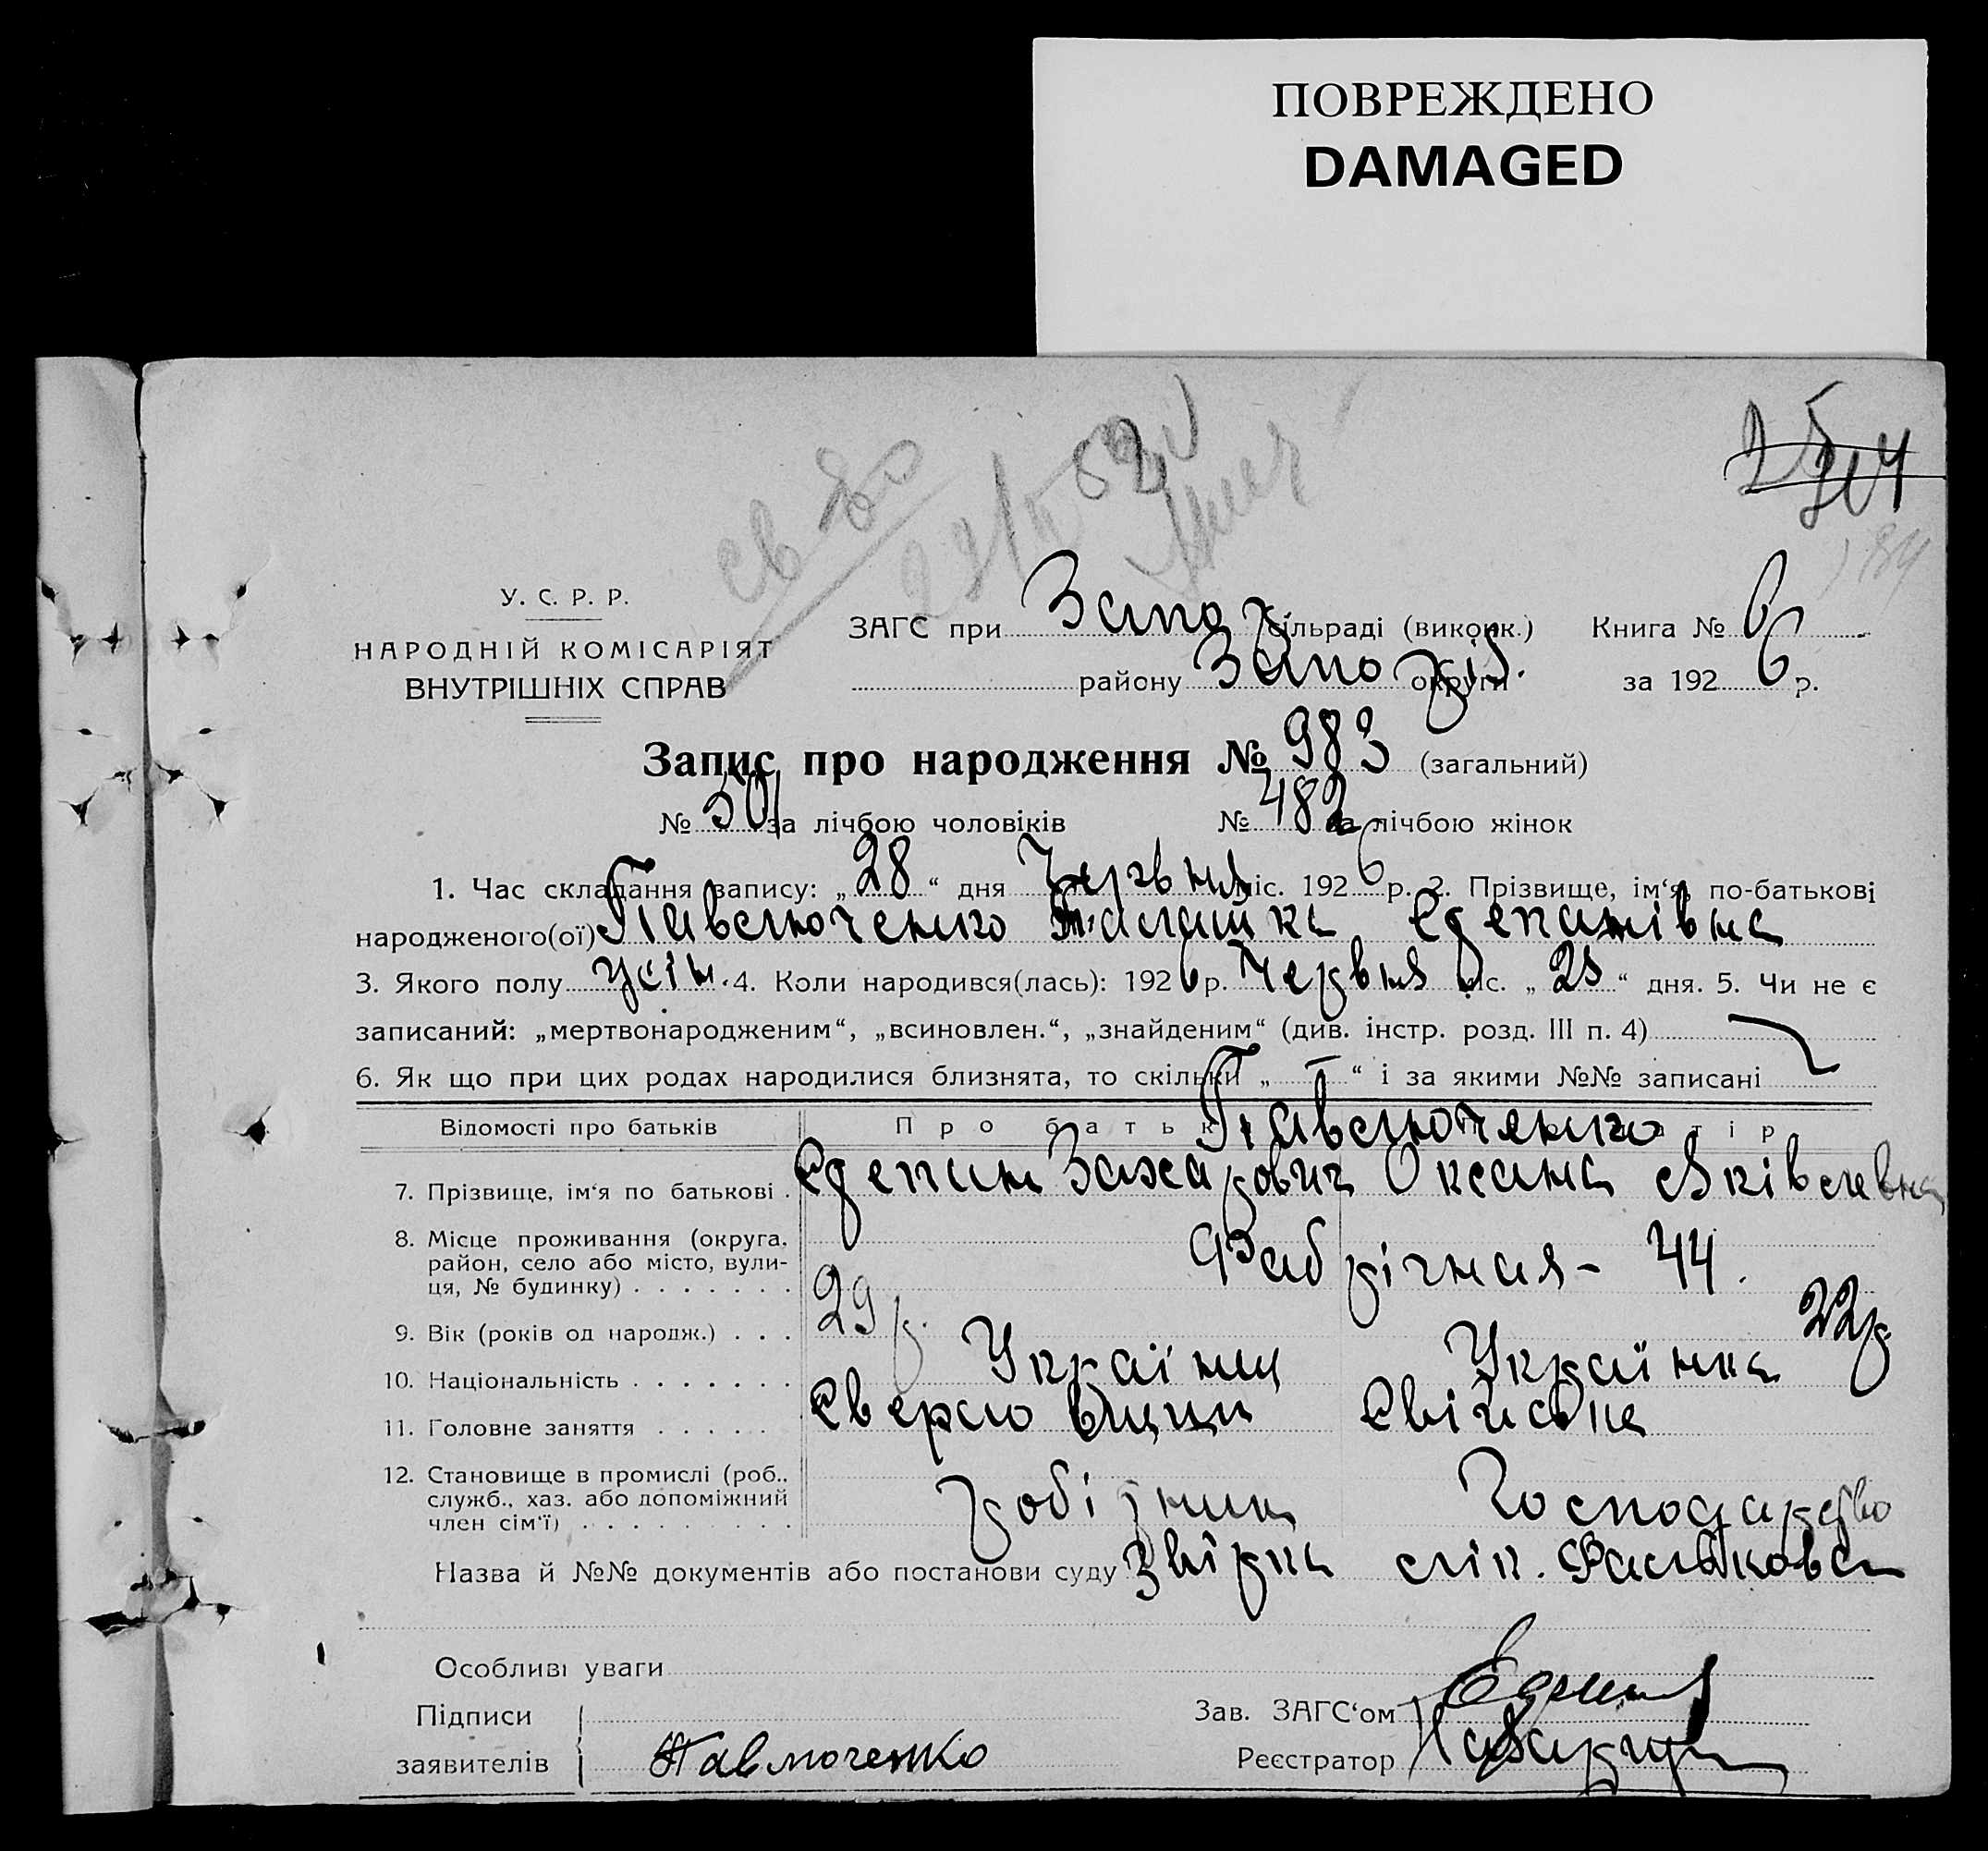 ПОВРЕЖДЕНО
DAMAGED
св
У. С. Р. Р.
НАРОДНІЙ КОМІСАРІЯТ
ВНУТРІШНІХ СПРАВ
ЗАГС при Запо сільраді (виконк.) Книга № 6
району Запоріз. округи за 1926 р.
Запис про народження № 983 (загальний)
№ 501 за лічбою чоловіків № 482 за лічбою жінок
1. Час складання запису: „28“ дня Червня міс. 1926 р. 2. Прізвище, ім‘я, по-батькові
народженого(ої) Павлюченко Степанівна
3. Якого полу жін. 4. Коли народився(лась): 1926 р. Червня міс. „ “ дня. 5. Чи не є
записаний: „мертвонародженим“, „всиновлен.“, „знайденим“ (див. інстр. розд. III п. 4)
6. Як що при цих родах народилися близнята, то скільки „ — “ і за якими №№ записані
Відомості про батьків Про батька Павлюченко матір
7. Прізвище, ім‘я по батькові . Степан Захарович Оксана Яківлевна
8. Місце проживання (округа, район, село або місто, вулиця, № будинку) . . . . . . . Фабрічная - 44.
9. Вік (років од народж.) . . . 29 р. 22 р
10. Національність . . . . . . . Українец Українка
11. Головне заняття . . . . . Сверловщик Свійське
12. Становище в промислі (роб., служб., хаз. або допоміжний член сім‘ї) . . . . . . . . . робітник Господарство
Назва й №№ документів або постанови суду Звірка лік. Фальковса
Особливі уваги
Підписи
заявителів Павлюченко
Зав. ЗАГС‘ом
Реєстратор